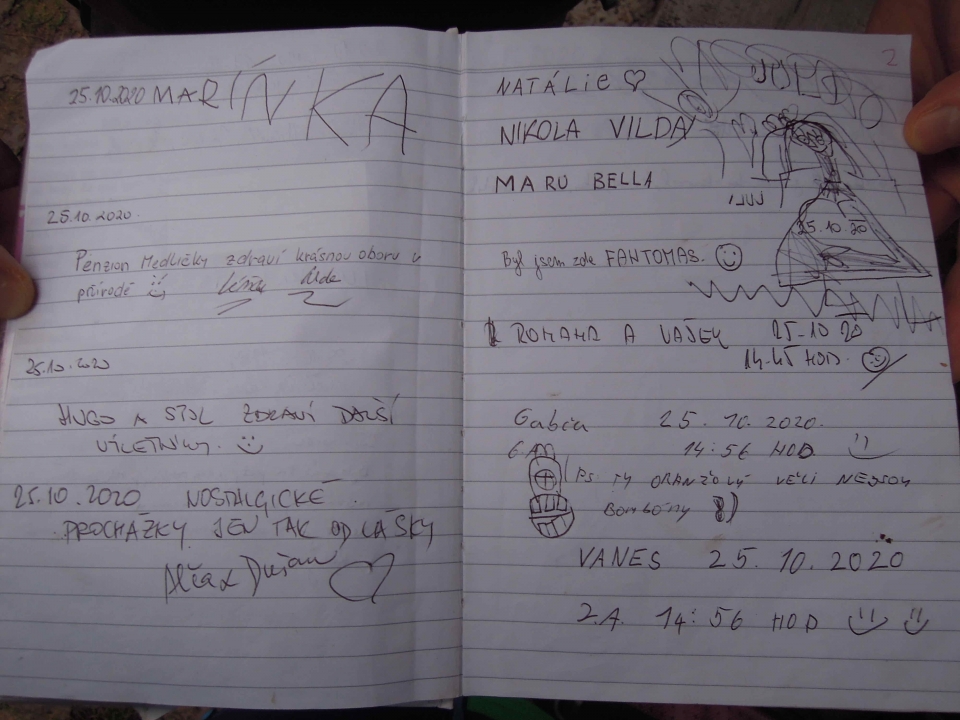 25.10.2020 MARÍNKA
25.10.2020.
Penzion Medličky zdraví krásnou oboru v
přírodě
25.10.2020
HUGO A STOL ZDRAVÍ DALŠÍ
VÝLETNÍKY.
25.10.2020 NOSTALGICKÉ
PROCHÁZKY JEN TAK OD LÁSKY
Dušan
2
NATÁLIE ♡
NIKOLA VILDA
MARU BELLA
25.10.20
Byl jsem zde FANTOMAS.
ROMANA A VAŠEK 25-10 20
14-45 HOD.
Gabča 25. 10. 2020.
6.A 14:56 HOD
Ps TY ORANŽOVÝ VĚCI NEJSOU
Bombóny
VANES 25. 10. 2020
2.A. 14:56 HOD